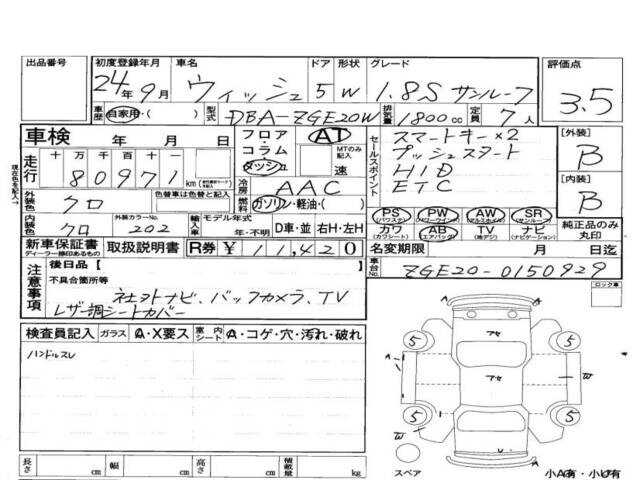 出品番号 初度登録年月 車名 ドア 形状 グレード 評価点
24年9月 ウィッシュ 5 W 1.8S サンルーフ 3.5
車歴 自家用・( ) 型式 DBA-ZGE20W 排気量 1800cc 定員 7人
車検 年 月 日 フロア・コラム・ダッシュ AT MTのみ記入 速
セールスポイント スマートキー×2
プッシュスタート
HID
ETC
[外装] B
[内装] B
走行 十万千百十一
80971 km
現在色を記入→
冷房 AAC
外装色 クロ 色替車は色替と記入 燃料 ガソリン・軽油・( )
内装色 クロ 外装カラーNo. 202 輸入車 モデル年式 年・不明 D車・並 右H・左H
PS (パワステ) PW (パワーウィンド) AW (アルミホイル) SR (サンルーフ) 純正品のみ丸印
カワ (カワシート) AB (エアバッグ) TV (地デジ) ナビ (ナビゲーション)
新車保証書 ディーラー捺印あるもの 取扱説明書 R券 ¥11,420
名変期限 月 日迄
車台No. ZGE20-0150929
注意事項 後日品【
不具合箇所等
社外ナビ、バックカメラ、TV
レザー調シートカバー
ロック車
検査員記入 ガラス A・X要ス 室内シート A・コゲ・穴・汚れ・破れ
ハンドルスレ
5 5
アセ
A W
アセ
5 5
長さ cm 幅 cm 高さ cm 積載量 kg
スペア 小A有・小U有